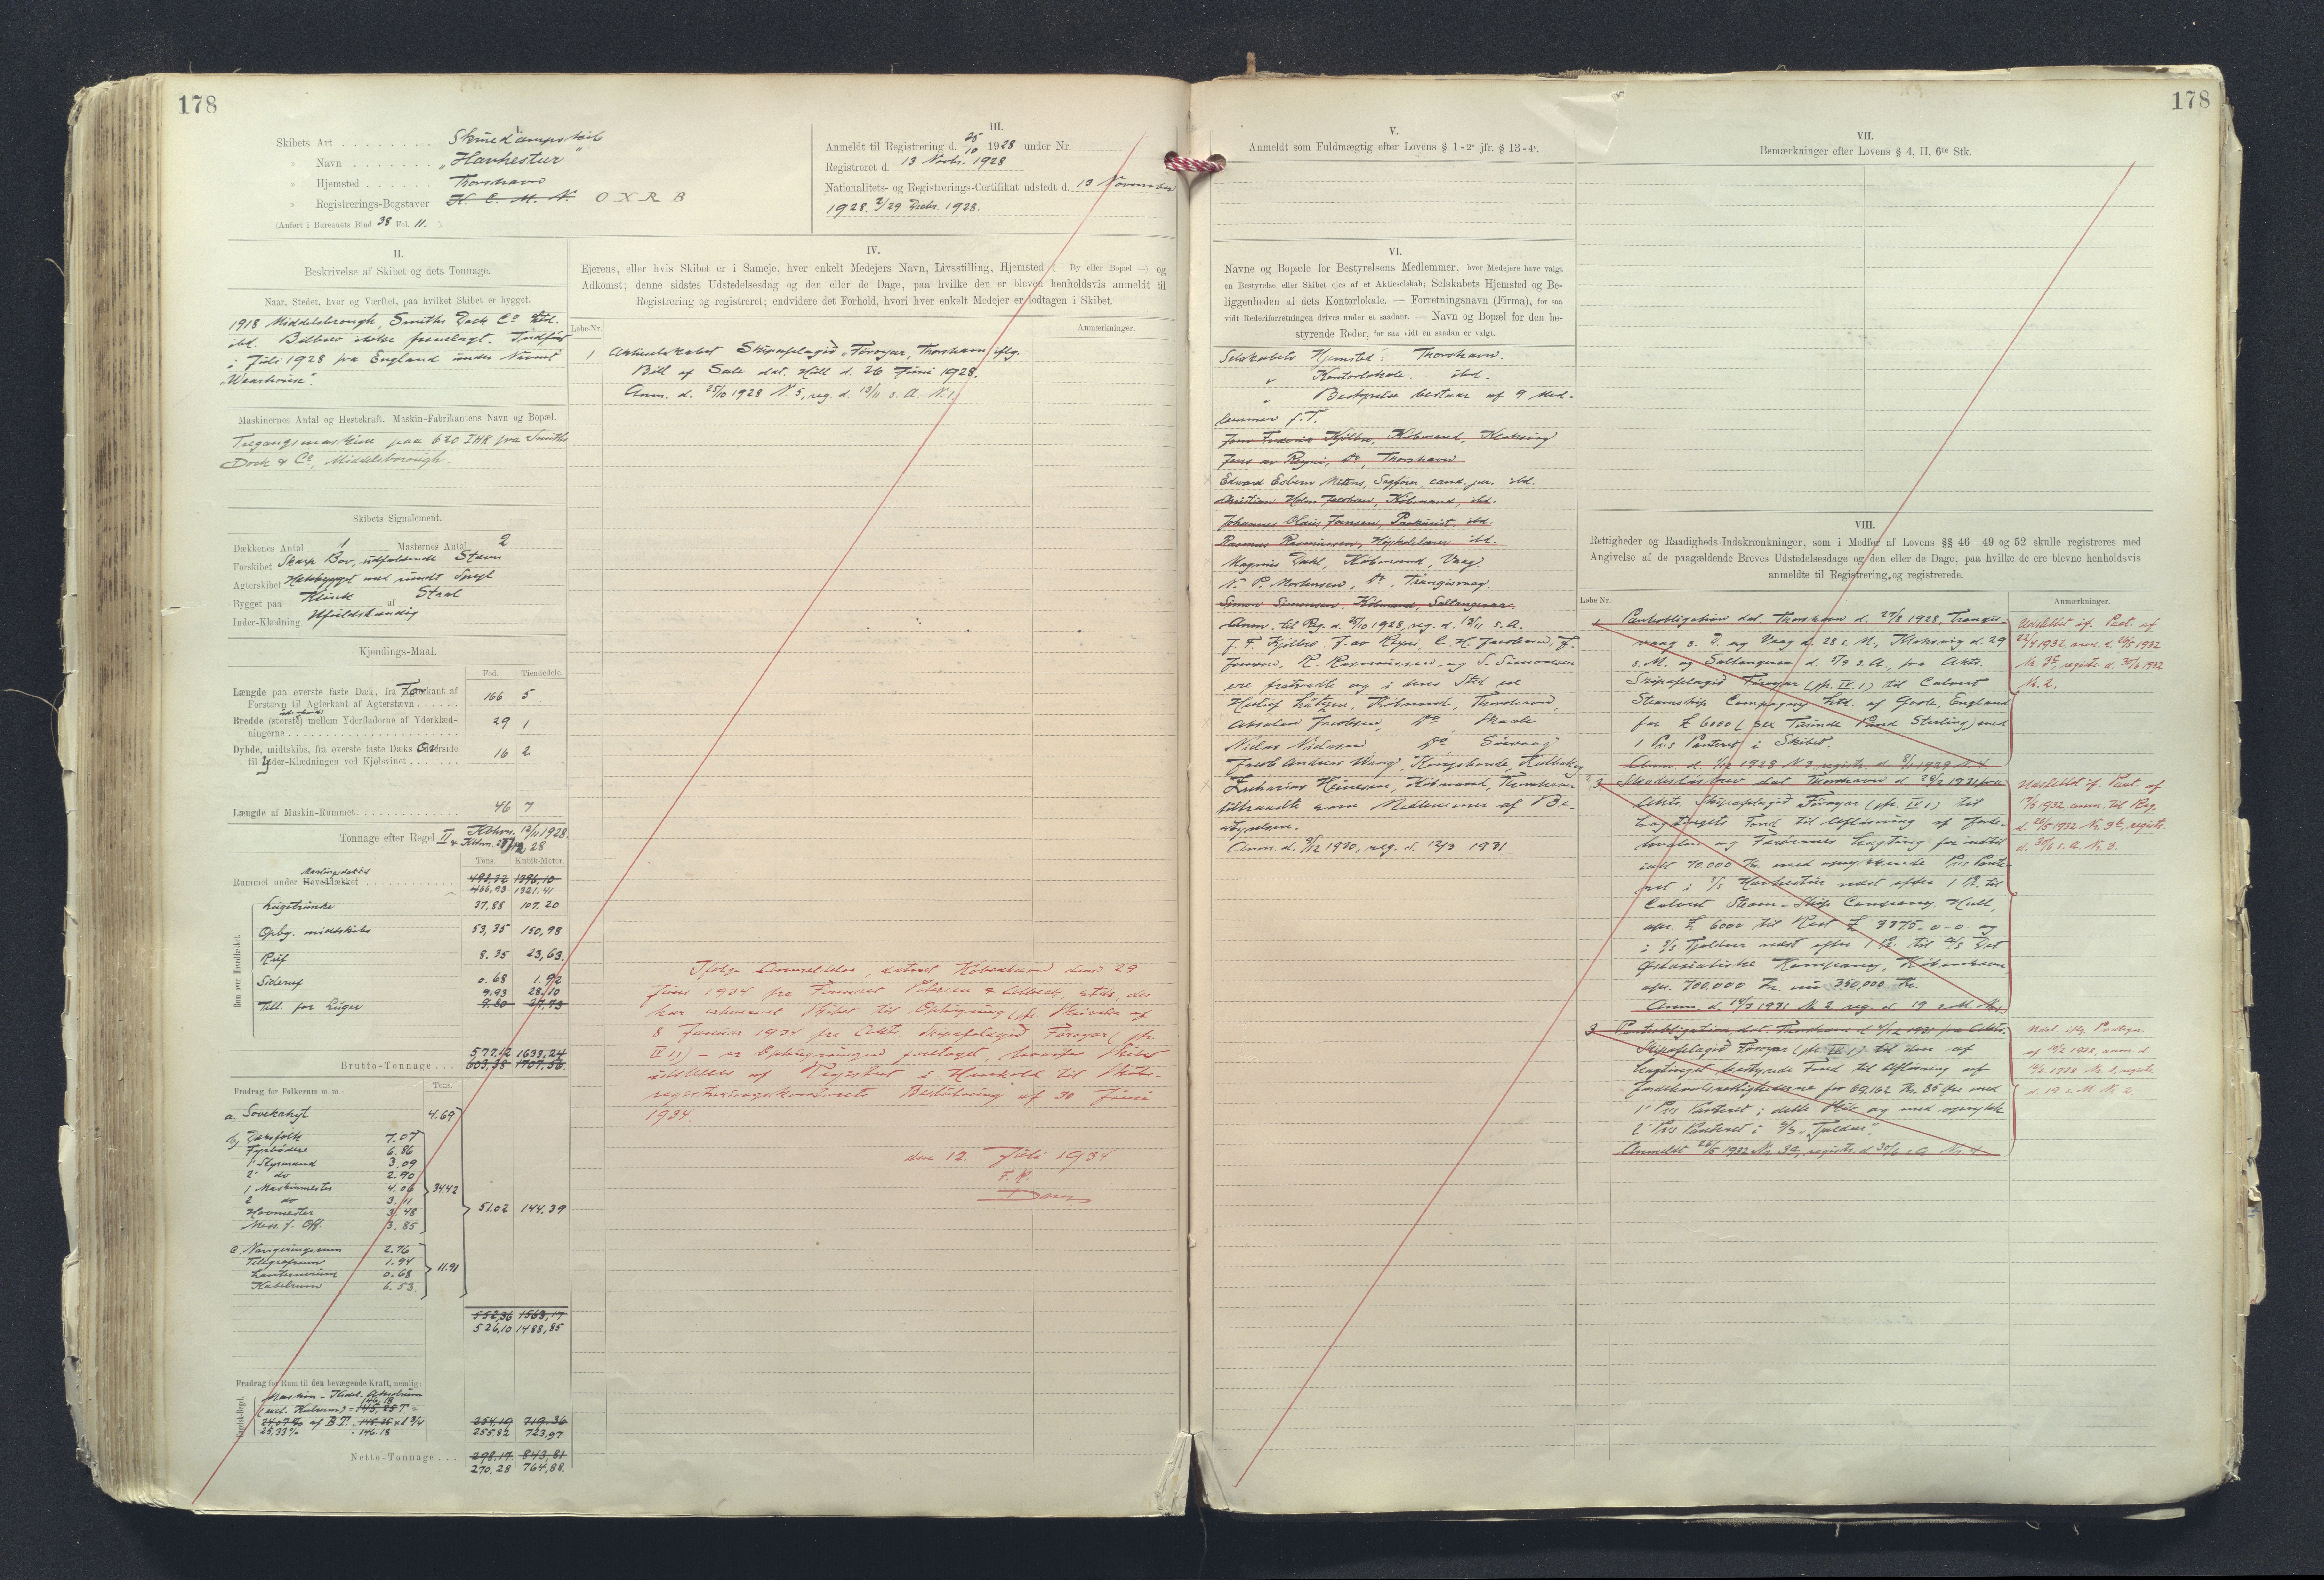 178
I.
Skibets Art . . . . . . . . . Skruedampskib
» Navn . . . . . . . . „Havhestur“
» Hjemsted . . . . . . Thorshavn
» Registrerings-Bogstaver N. C. M. N. O X R B
(Anført i Bureauets Bind 38 Fol. 11. ).
III.
Anmeldt til Registrering d. 25/10 1928 under Nr.
Registreret d. 13 Novbr. 1928
Nationalitets- og Registrerings-Certifikat udstedt d. 13 November
1928. 2/29 Decbr. 1928.
II.
Beskrivelse af Skibet og dets Tonnage.
Naar, Stedet, hvor og Værftet, paa hvilket Skibet er bygget.
1918 Middelsbrough, Smiths Dock Co Ltd.
ibd. Bilbrev ikke fremlagt. Indført
i Juli 1928 fra England under Navnet
„Wearhouse“.
Maskinernes Antal og Hestekraft. Maskin-Fabrikantens Navn og Bopæl.
Tregangsmaskine paa 620 IHK fra Smiths
Dock & Co, Middelsborough.
Skibets Signalement.
Dækkenes Antal 1 Masternes Antal 2
Forskibet Skarp Bov, udfaldende Stævn
Agterskibet Hækbygget med rundt Spejl
Bygget paa Klink af Staal
Inder-Klædning Ufuldstændig
Kjendings-Maal.
Fod. Tiendedele.
Længde paa øverste faste Dæk, fra Forkant af
Forstævn til Agterkant af Agterstævn . . . . . . 166 5
Bredde (største) mellem Yderfladerne af Yderklæd-
ningerne . . . . . . . . . . 29 1
Dybde, midtskibs, fra øverste faste Dæks Overside
til Yder-Klædningen ved Kjølsvinet . . . . . . . 16 2
Længde af Maskin-Rummet . . . . . . . . 46 7
Tonnage efter Regel II Kbhvn. 12/11 1928.
Tons. Kubik-Meter.
Rummet under Hoveddækket . . . . . . 493,22 1396,10
466,93 1321.41
Rum over Hoveddækket.
Lugetrunke 37,88 107.20
Opbg. midtskibs 53,35 150,98
Ruf 8.35 23,63.
Sideruf 0.68 1.92
9.93 28.10
Till. for Luger 9.80 27,73
577.12 1633,24
Brutto-Tonnage . . . 603,38 1707,56.
Fradrag for Folkerum m. m.: Tons.
a. Sovekahyt 4.69
b) Dæksfolk 7.07
Fyrbødere 6.86
1' Styrmand 3.09
2' do 2.90
1 Maskinmester 4.06
2 do 3.11
Hovmester 3.48
Mess. f. Off. 3.85
34.42
51.02 144,39
c. Navigeringsrum 2.76
Telegrafrum 1.94
Lanternerum 0.68
Kabelrum 6.53.
11.91
552,36 1563,17
526,10 1488,85
Fradrag for Rum til den bevægende Kraft, nemlig:
254,19 719.36
255.82 723,97
Netto-Tonnage . . . 298,17 843,81
270,28 764,88.
IV.
Ejerens, eller hvis Skibet er i Sameje, hver enkelt Medejers Navn, Livsstilling, Hjemsted (— By eller Bopæl —) og
Adkomst; denne sidstes Udstedelsesdag og den eller de Dage, paa hvilke den er bleven henholdsvis anmeldt til
Registrering og registreret; endvidere det Forhold, hvori hver enkelt Medejer er lodtagen i Skibet.
Løbe-Nr. Anmærkninger.
1 Aktieselskabet Skipafelagið „Föroyar“, Thorshavn iflg.
Bill of Sale dat. Hull d. 26 Juni 1928.
Anm. d. 25/10 1928 N. 5, reg. d. 13/11 s. A. N. 1.
Ifølge Anmeldelse, dateret København den 29
Juni 1934 fra Firmaet Petersen & Albeck, etc., der
har erhvervet Skibet til Ophugning (jfr. Skrivelse af
8 Januar 1934 fra Akts. Skipafelagið Föroyar (jfr.
IV 1)) – er Ophugningen foretaget, hvorfor Skibet
udslettes af Registret i Henhold til Skibs-
registreringskontorets Beslutning af 30 Juni
1934.
den 12. Juli 1934
V.
Anmeldt som Fuldmægtig efter Lovens § 1-2° jfr. § 13-4°.
VI.
Navne og Bopæle for Bestyrelsens Medlemmer, hvor Medejere have valgt
en Bestyrelse eller Skibet ejes af et Aktieselskab; Selskabets Hjemsted og Be-
liggenheden af dets Kontorlokale. — Forretningsnavn (Firma), for saa
vidt Rederiforretningen drives under et saadant. — Navn og Bopæl for den be-
styrende Reder, for saa vidt en saadan er valgt.
Selskabets Hjemsted: Thorshavn.
„ Kontorlokale. ibd.
„ Bestyrelse bestaar af 9 Med-
lemmer f. T.
Jens Frederik Kjølbro, Købmand, Klaksvig
Jens av Reyni, do, Thorshavn
Edward Esbern Mitens, Sagfører, cand. jur. ibd.
Christian Holm Jacobsen, Købmand, ibd.
Johannes Olaus Joensen, Prokurist, ibd.
Rasmus Rasmussen, Højskolelærer ibd.
Magnus Dahl, Købmand, Vaag
N. P. Mortensen, do, Trangisvaag.
Simon Simonsen, Købmand, Saltangeraa.
Anm. til Reg. d. 25/10 1928, reg. d. 13/11 s. A.
J. F. Kjölbro, J. av Reyni, C. H. Jacobsen, J.
Joensen, R. Rasmussen og S. Simonsen
ere fratraadte og i deres Sted ere
Lützen, Købmand, Thorshavn,
Absalon Jacobsen, do Skaale
Niclas Niclasen, do, Sörvaag
Jacob Andreas Wang, Kongsbonde, Kolbak
Zacharias Heinesen, Købmand, Thorshavn
tiltraadte som Medlemmer af Be-
styrelsen.
Anm. d. 9/12 1930, reg. d. 12/3 1931
178
VII.
Bemærkninger efter Lovens § 4, II, 6te Stk.
VIII.
Rettigheder og Raadigheds-Indskrænkninger, som i Medfør af Lovens §§ 46—49 og 52 skulle registreres med
Angivelse af de paagældende Breves Udstedelsesdage og den eller de Dage, paa hvilke de ere blevne henholdsvis
anmeldte til Registrering og registrerede.
Løbe-Nr. Anmærkninger.
1 Pantobligation dat. Thorshavn d. 27/8 1928, Trangis-
vaag s. D. og Vaag d. 28 s. M., Klaksvig d. 29
s. M. og Saltangeraa d. 5/9 s. A., fra Akts.
Skipafelagið Föroyar (jfr. IV. 1) til Calvert
Steamship Company Ltd. of Goole, England
for £ 6000 (sex Tusinde Pund Sterling) med
1 Pr.s Panteret i Skibet.
Udslettet if. Paat. af
22/4 1932, anm. d. 26/5 1932
Nr. 35, registr. d. 30/6 1932
Nr. 2.
3. Skadesløsbrev dat Thorshavn d. 28/2 1931 fra
Akts. Skipafelagið Föroyar (jfr. IV 1) til
Lagtingets Fond til Afløsning af Forle-
havelser og Færøernes Lagting for indtil
ialt 70.000 Kr. med oprykkende Pr.s Pante-
ret i S/S Havhestur næst efter 1 Pr. til
Calvert Steam-Ship Company, Hull,
opr. £ 6000 til Rest £ 3375-0-0 og
i S/S Tjaldur næst efter 1 Pr. til A/S Det
Østasiatiske Kompagni, København,
opr. 700,000 Kr. nu 350,000 Kr.
Anm. d. 14/3 1931 N. 2 reg. d. 19 s. M.
3 Pantobligation dat. Thorshavn d. 2/12 1931 fra Akts.
Skipafelagið Föroyar (jfr. IV 1) til den af
Lagtinget bestyrede Fond til Afløsning af
for 69,162 Kr. 35 Øre med
1' Pr.s Panteret i dette Skib og med oprykk.
2' Pr.s Panteret i S/S „Tjaldur“.
Anmeldt 26/5 1932 Nr 3a, registr. d 30/6 s. A. Nr 4